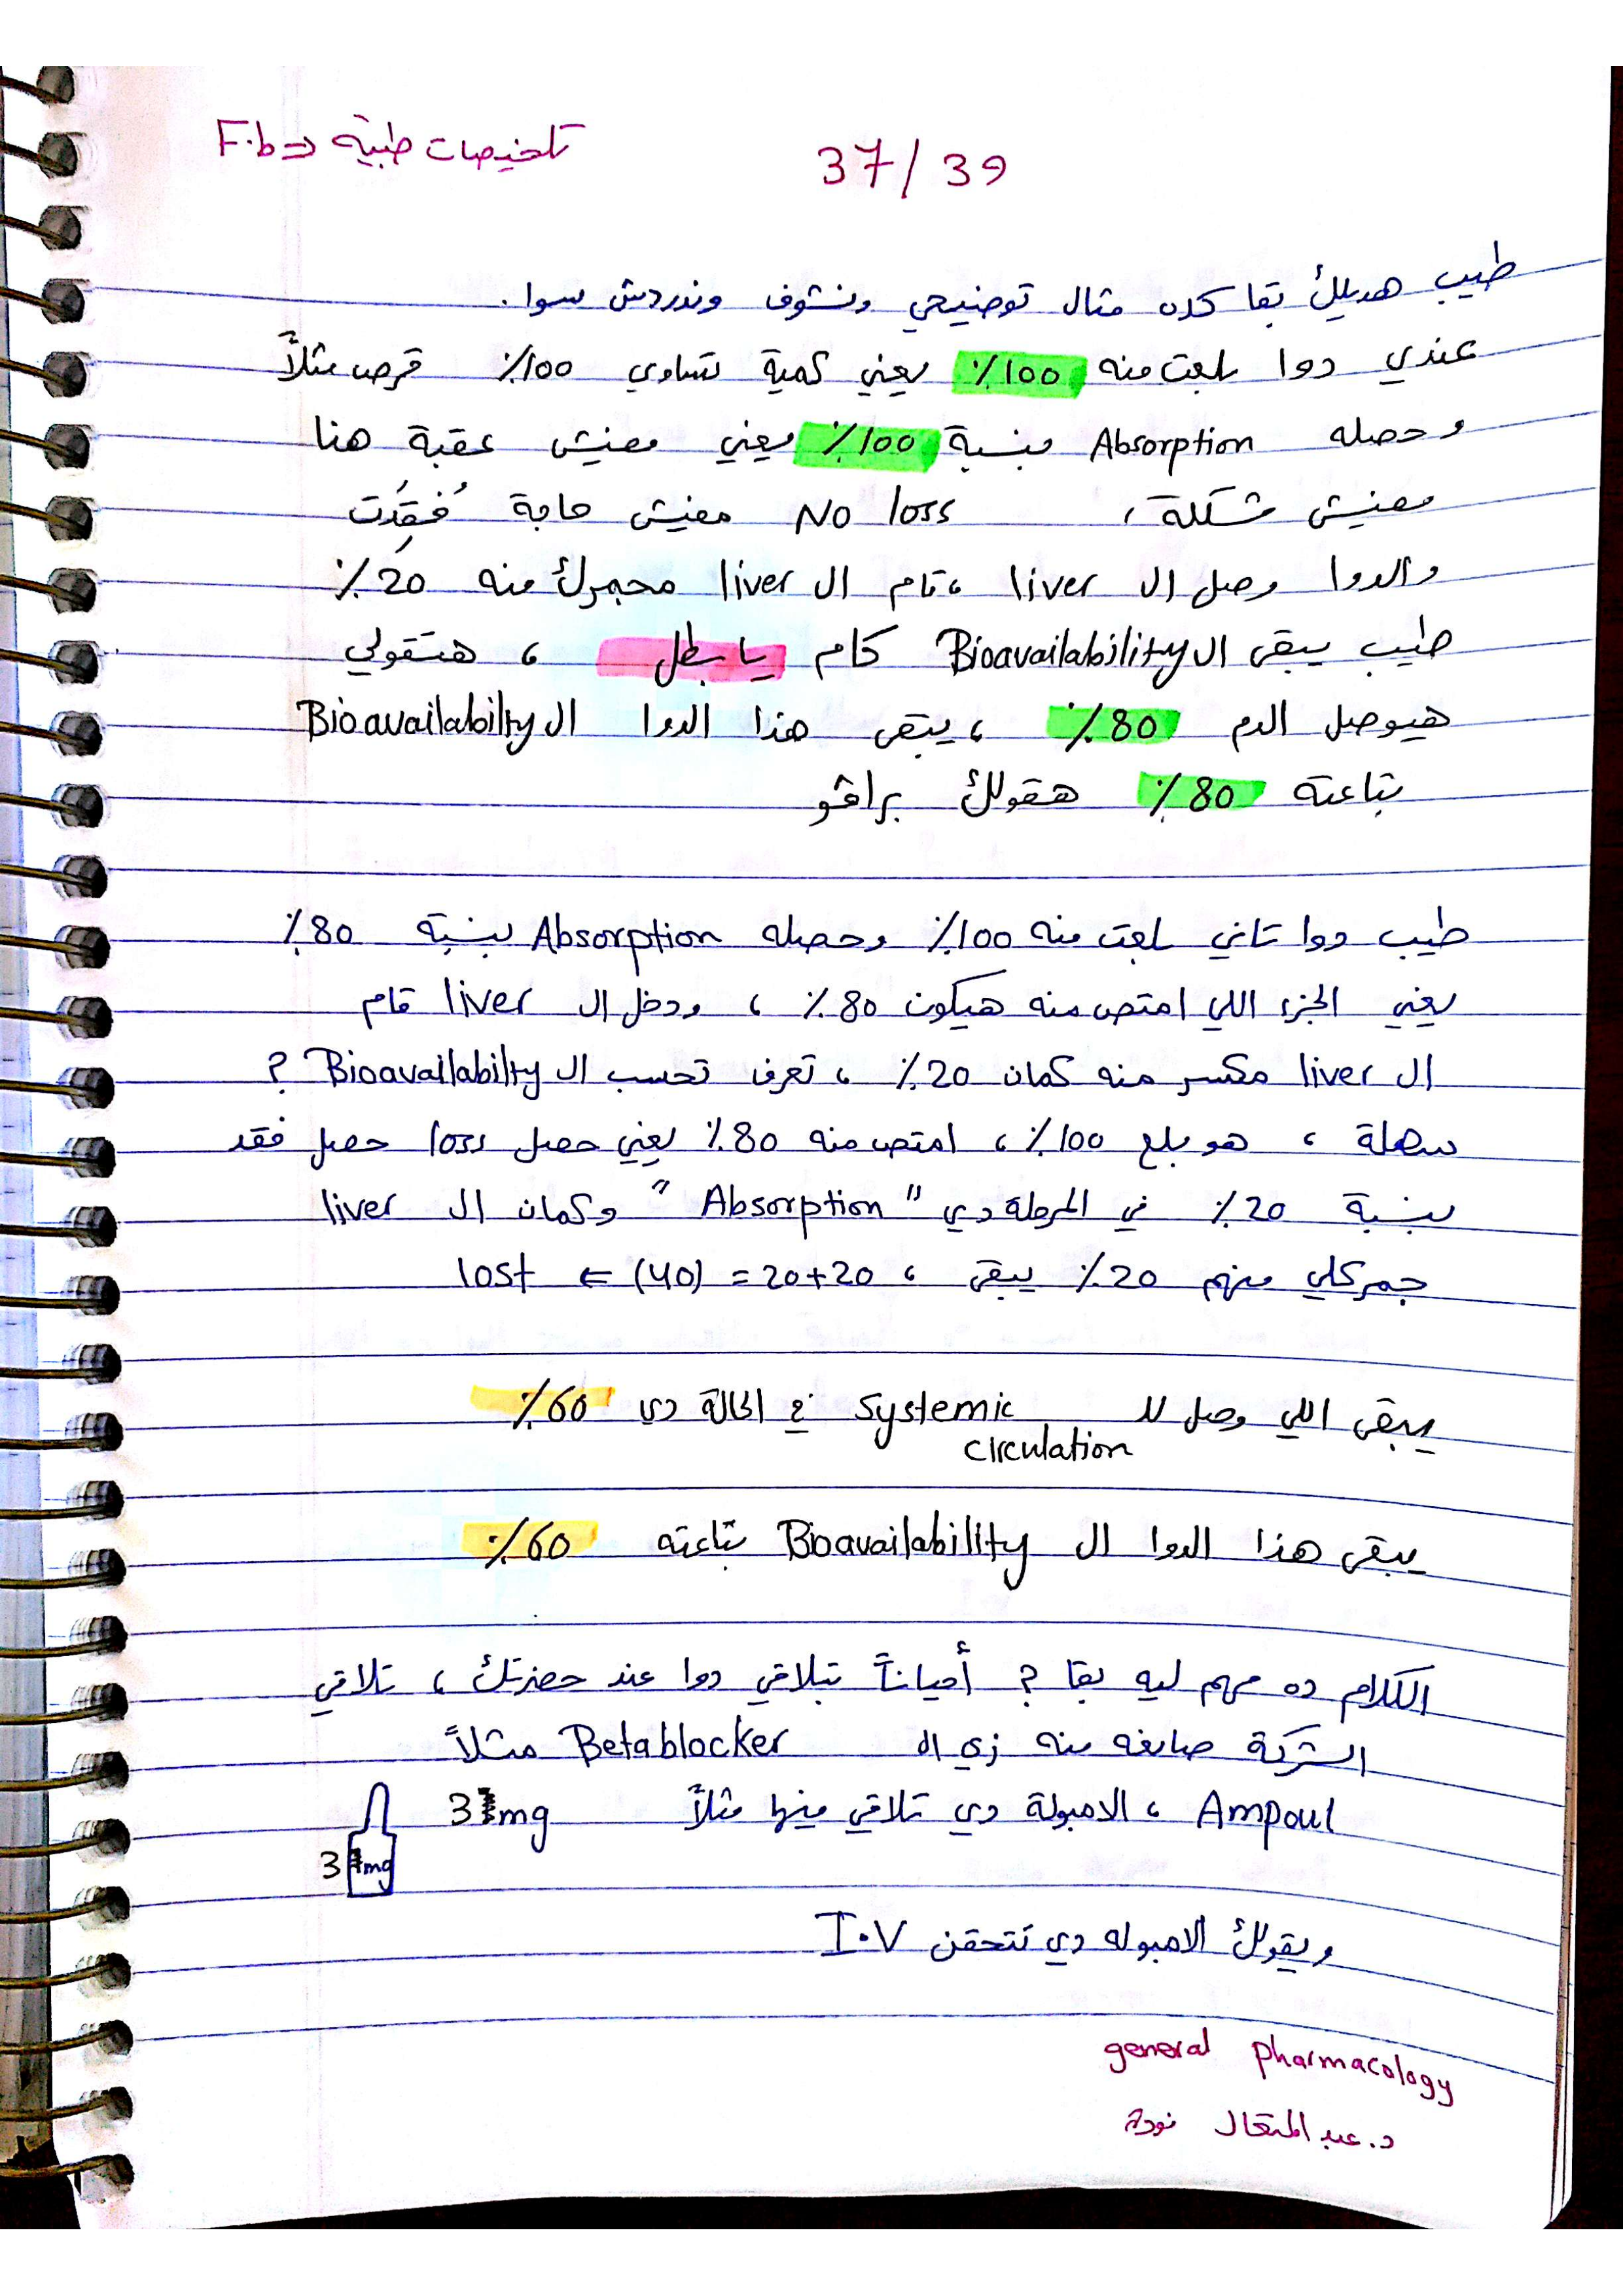 تلخيصات طبية <= F.b
37/39
طيب هديلك بقا كده مثال توضيحي ونشوف وندردش سوا.
عندي دوا بلعت منه 100٪ يعني كمية تساوي 100٪ قرص مثلاً
وحصله Absorption بنسبة 100٪ يعني مفيش عقبة هنا
مفيش مشكلة، No loss مفيش حاجة فُقِدَت
والدوا وصل ال liver، قام ال liver مجمرك منه 20٪
طيب يبقى ال Bioavailability كام يا بطل، هتقولي
هيوصل الدم 80٪، يبقى هذا الدوا ال Bioavailabilty
بتاعته 80٪ هقولك براڤو
طيب دوا تاني بلعت منه 100٪ وحصله Absorption بنسبة 80٪
يعني الجزء اللي امتص منه هيكون 80٪، ودخل ال liver قام
ال liver مكسر منه كمان 20٪، تعرف تحسب ال Bioavailabilty ?
سهلة، هو بلع 100٪، امتص منه 80٪ يعني حصل loss حصل فقد
بنسبة 20٪ في المرحلة دي "Absorption" وكمان ال liver
جمركلي منهم 20٪ يبقى، 20+20 = (40) <= lost
يبقى اللي وصل لل systemic في الحالة دي 60٪
circulation
يبقى هذا الدوا ال Bioavailability بتاعته 60٪
الكلام ده مهم ليه بقا ? أحياناً تبلاقي دوا عند حضرتك، تلاقي
الشركة صانعه منه زي ال Betablocker مثلاً
Ampoul، الامبولة دي تلاقي فيها مثلاً 3mg
3mg
ويقولك الامبوله دي تتحقن I.V
general pharmacology
د.عبد المتعال فودة